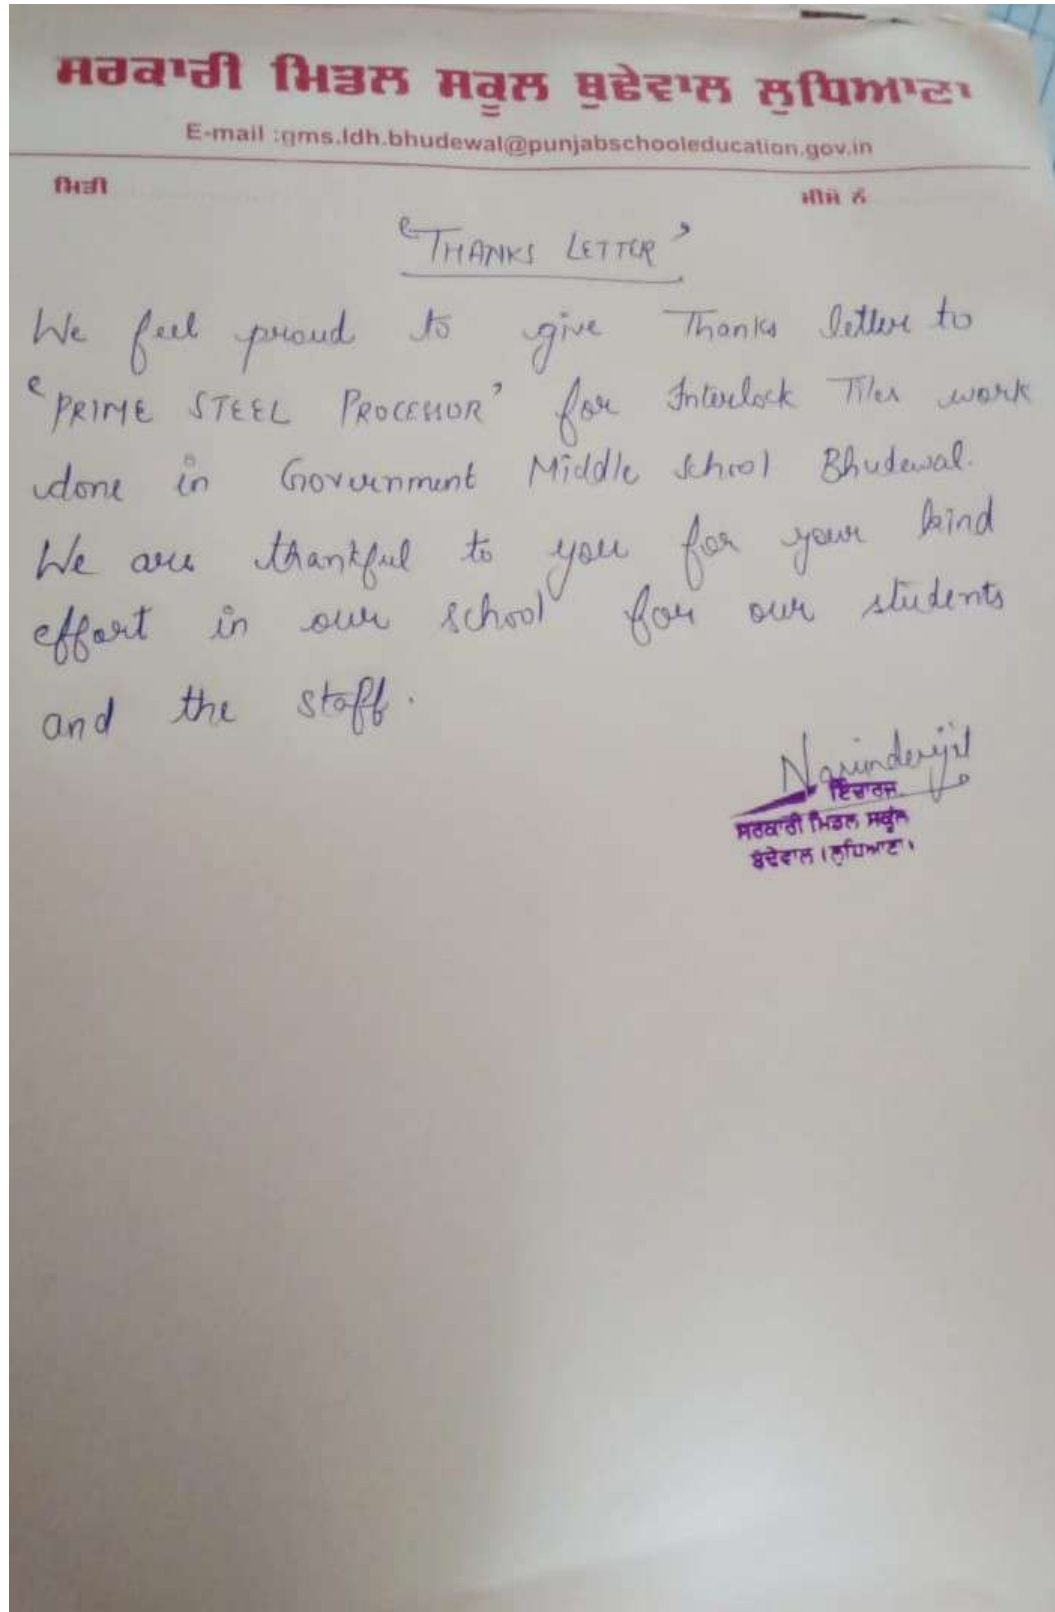 ਸਰਕਾਰੀ ਮਿਡਲ ਸਕੂਲ ਬੁਢੇਵਾਲ ਲੁਧਿਆਣਾ
E-mail :gms.ldh.bhudewal@punjabschooleducation.gov.in
ਮਿਤੀ
ਮੀਮੋ ਨੰ
"THANKS LETTER"
We feel proud to give Thanks letter to
"PRIME STEEL PROCESSOR" for Interlock Tiles work
done in Government Middle School Bhudewal.
We are thankful to you for your kind
effort in our school for our students
and the staff.
Narinderjit
ਇੰਚਾਰਜ
ਸਰਕਾਰੀ ਮਿਡਲ ਸਕੂਲ
ਬੁੱਢੇਵਾਲ (ਲੁਧਿਆਣਾ)